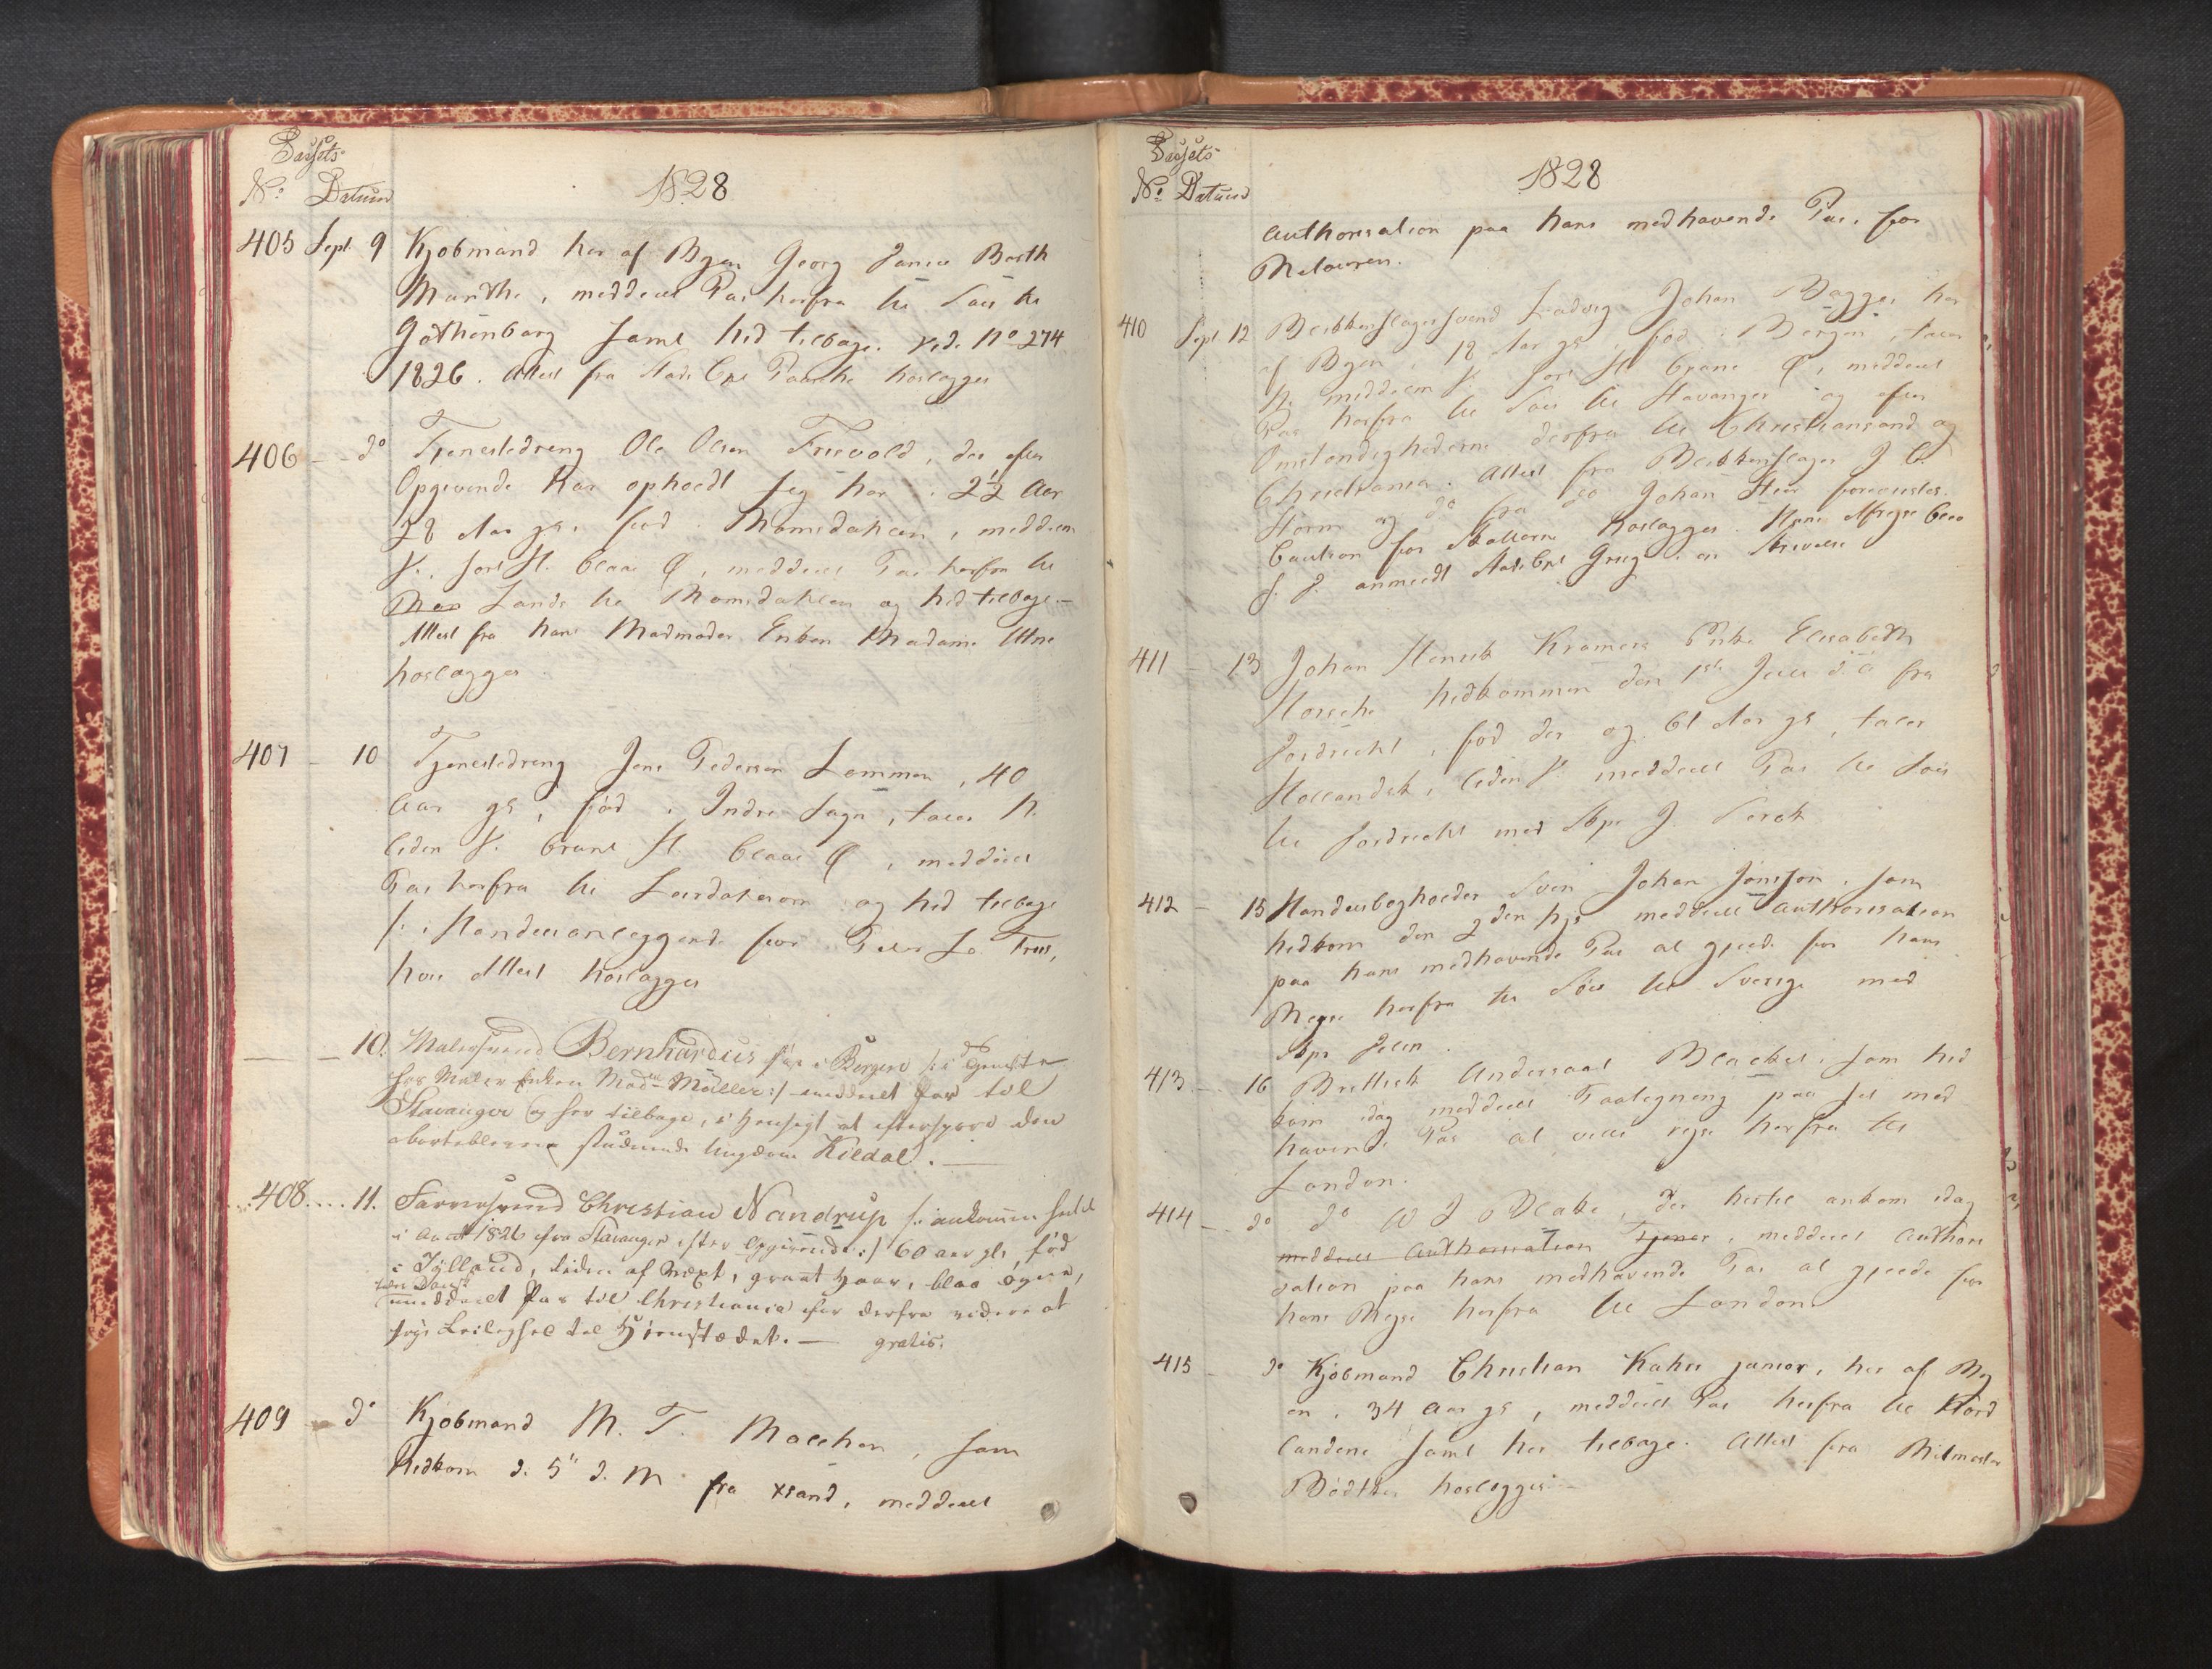 Passets
No. Datum
1828
405 Sept. 9 Kjøbmand her af Byen Georg James Barth
Marthe, meddeelt Pas herfra til Søes til
Gothenborg samt hid tilbage. vide No 274
1826. Attest fra Stads Cpt hoslægges
406 — do Tjenestedreng Ole Olsen Frisvold, der efter
Opgivende har opholdt sig her i 2½ Aar
28 Aar gl, fød i Romsdahlen, middem
V., sort H. blaae Ø, meddeelt Pas herfra til
Lands til Romsdahlen og hid tilbage.—
Attest fra hans Madmoder Enken Madame
hoslægges
407 — 10 Tjenestedreng Jens Pedersen Lemmen, 40
Aar gl, fød i Indre Sogn, taler N.
liden V. bruunt H. blaae Ø, meddeelt
Pas herfra til Leirdalsøren og hid tilbage
/: i Handelsanliggende for Peter
hvis Attest hoslægges
— — 10. Malersvend Bernhardus før i Bergen /: i Tjeneste
hos Maler Enken Madme Müller :/ meddeelt Pas til
Stavanger og her tilbage, i Hensigt at efterspore den
borteblevne studerende Ungdom Kildal. —
408 .... 11. Farversvend Christian Nandrup /: ankommen hertil
i Aaret 1826 fra Stavanger efter Opgivende :/ 60 aar gl, fød
i Jylland, liden af Vext, graat Haar, blaa Øyne,
taler Dansk
meddeelt Pas til Christiania for derfra videre at
søge Leilighed til Hjemstedet. — gratis.
409 — do Kjøbmand M. T. Malthen, som
hidkom d. 5te d. M fra Xsand, meddeelt
Passets
No. Datum
1828
Authorisation paa hans medhavende Pas, for
Retouren.
410 Sept 12 Blikkenslagersvend Ludvig Johan Bagge, her
af Byen, 18 Aar gl, fød i Bergen, taler
N. middem V. sort H. brune Ø, meddeelt
Pas herfra til Søes til Stavanger og efter
Omstændighederne derfra til Christiansand og
Christiania. Attest fra Blikkenslager J C.
Storm og do fra do Johan forevistes.
Caution for Skatterne hoslægges Hans Afreyse blev
s. D. anmeldt Stads Cpt Grieg i en Skrivelse
411 — 13 Johan Henrik Kramers Enke Elisabeth
hidkommen den 1ste Juli d. A fra
Dordrecht, fød der og 61 Aar gl, taler
Hollandsk, liden V. meddeelt Pas til Søes
til Dordrecht med Skpr J.
412 — 15 Handelsbogholder Sven Johan Jönsson, som
hidkom den 2den hjs meddeelt Authorisation
paa hans medhavende Pas at gjelde for hans
Reyse herfra til Søes til Sverige med
Skpr
413 — 16 Brittisk Undersaat Blacket, som hid
kom idag meddeelt Paategning paa sit med
havende Pas at ville reyse herfra til
London.
414 — do do W J Blake, der hertil ankom idag
meddeelt Authorisation Tjener, meddeelt Authori
sation paa hans medhavende Pas at gjelde for
hans Reyse herfra til London
415 — do Kjøbmand Christian Kahrs junior, her af By
en, 34 Aar gl, meddeelt Pas herfra til Nord
landene samt her tilbage. Attest fra Ritmester
Bödtker hoslægges —